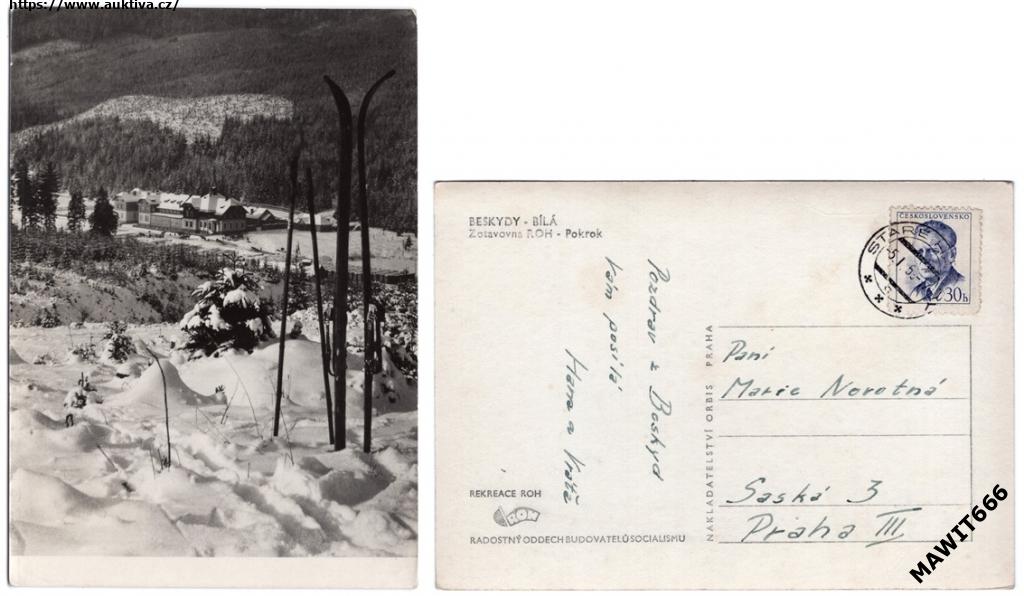 https://www.auktiva.cz/
BESKYDY - BÍLÁ
Zotavovna ROH - Pokrok
ČESKOSLOVENSKO
30h
STARÉ
Pozdrav z Beskyd
Vám posílá
Hana a
NAKLADATELSTVÍ ORBIS PRAHA
Paní
Marie Novotná
Saská 3
Praha III.
REKREACE ROH
ROH
RADOSTNÝ ODDECH BUDOVATELŮ SOCIALISMU
MAWIT666